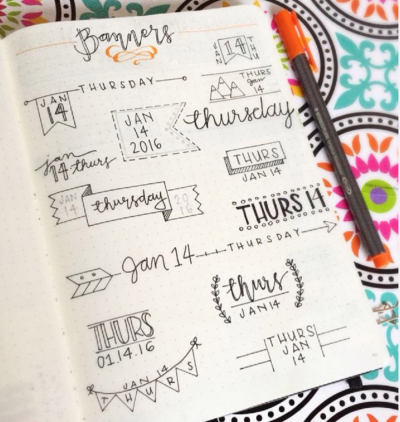 Banners
JAN 14 THU
JAN
14
THURSDAY
THURS
Jan
14
JAN
14
2016
thursday
jan
14 thurs
THURS
JAN 14
JAN
14
thursday
20
16
THURS 14
Jan 14 THURSDAY
thurs
JAN 14
THURS
01.14.16
THURS
JAN
14
JAN 14
THURS